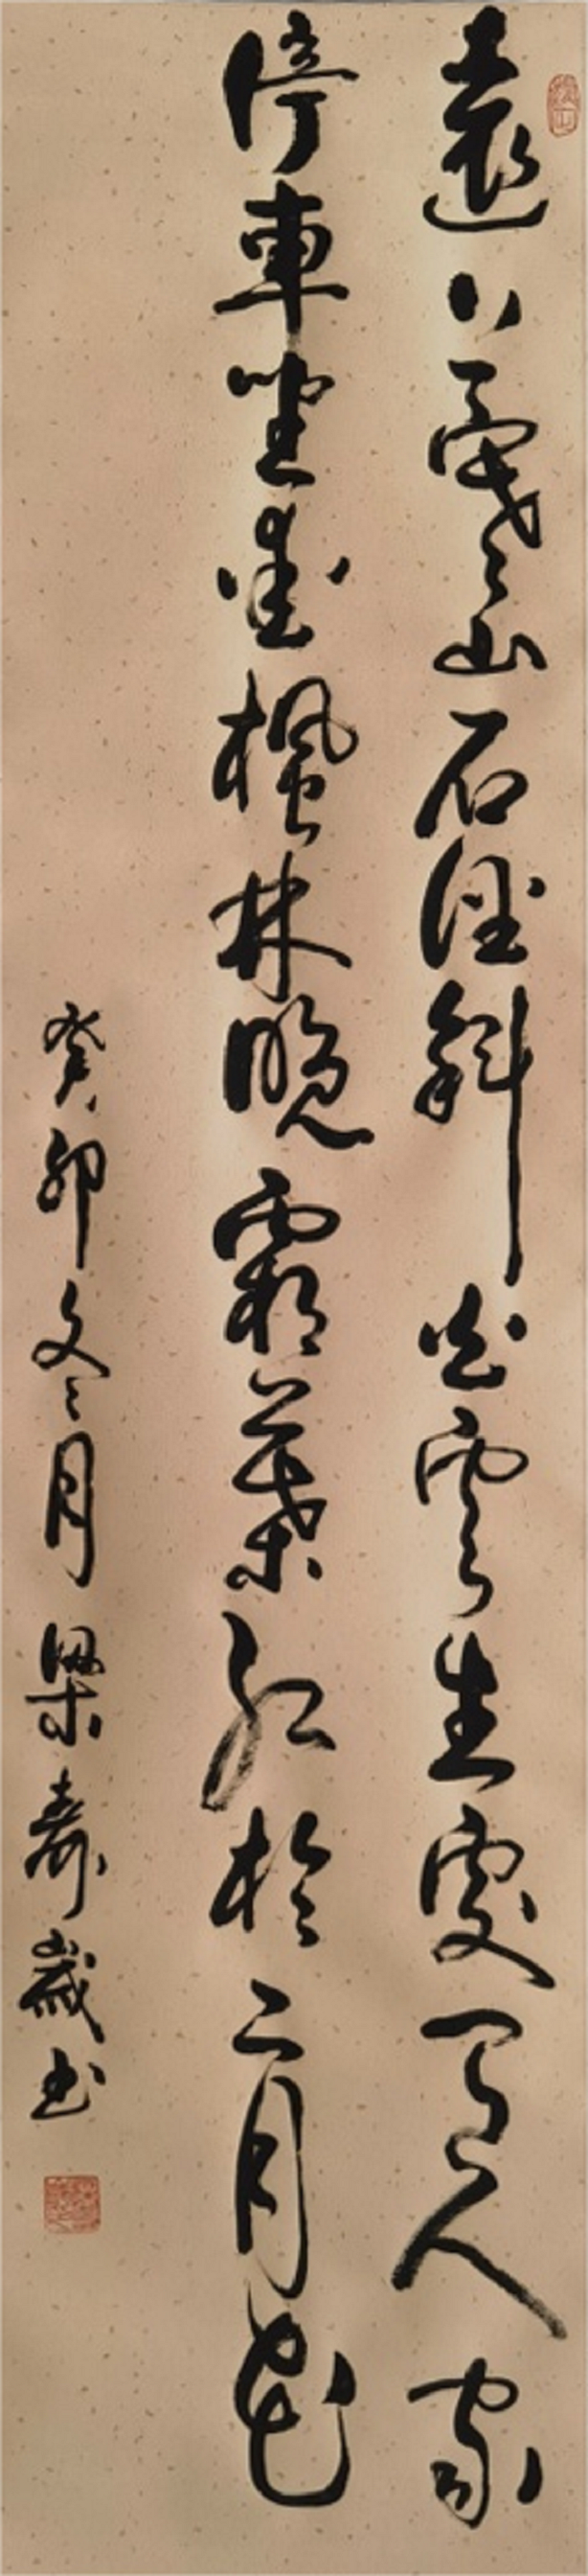 遠上寒山石徑斜白雲生處有人家
停車坐愛楓林晚霜葉紅於二月花
癸卯冬月梁壽嵗书